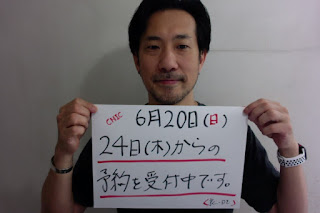 CHIC 6月20日(日)
24日(木)からの
予約を受付中です。